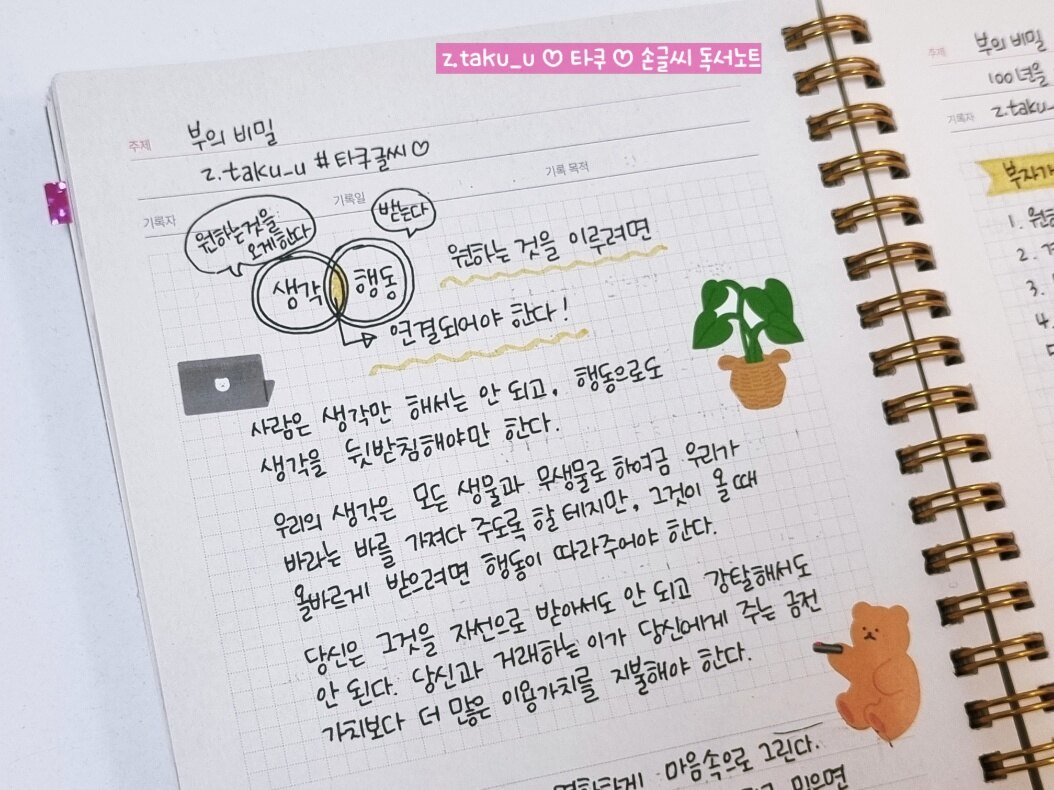 z.taku_u ♡ 타쿠 ♡ 손글씨 독서노트
주제 부의 비밀
z.taku_u #타쿠글씨♡
기록자 기록일 기록 목적
원하는것을
오게한다
받는다
생각 행동
원하는 것을 이루려면
연결되어야 한다!
사람은 생각만 해서는 안 되고, 행동으로도
생각을 뒷받침해야만 한다.
우리의 생각은 모든 생물과 무생물로 하여금 우리가
바라는 바를 가져다 주도록 할 테지만, 그것이 올 때
올바르게 받으려면 행동이 따라주어야 한다.
당신은 그것을 자선으로 받아서도 안 되고 강탈해서도
안 된다. 당신과 거래하는 이가 당신에게 주는 금전
가치보다 더 많은 이용가치를 지불해야 한다.
마음속으로 그린다.
믿으면
주제 부의 비밀
100년을
기록자 z.taku_
부자가
1.
2.
3.
4.